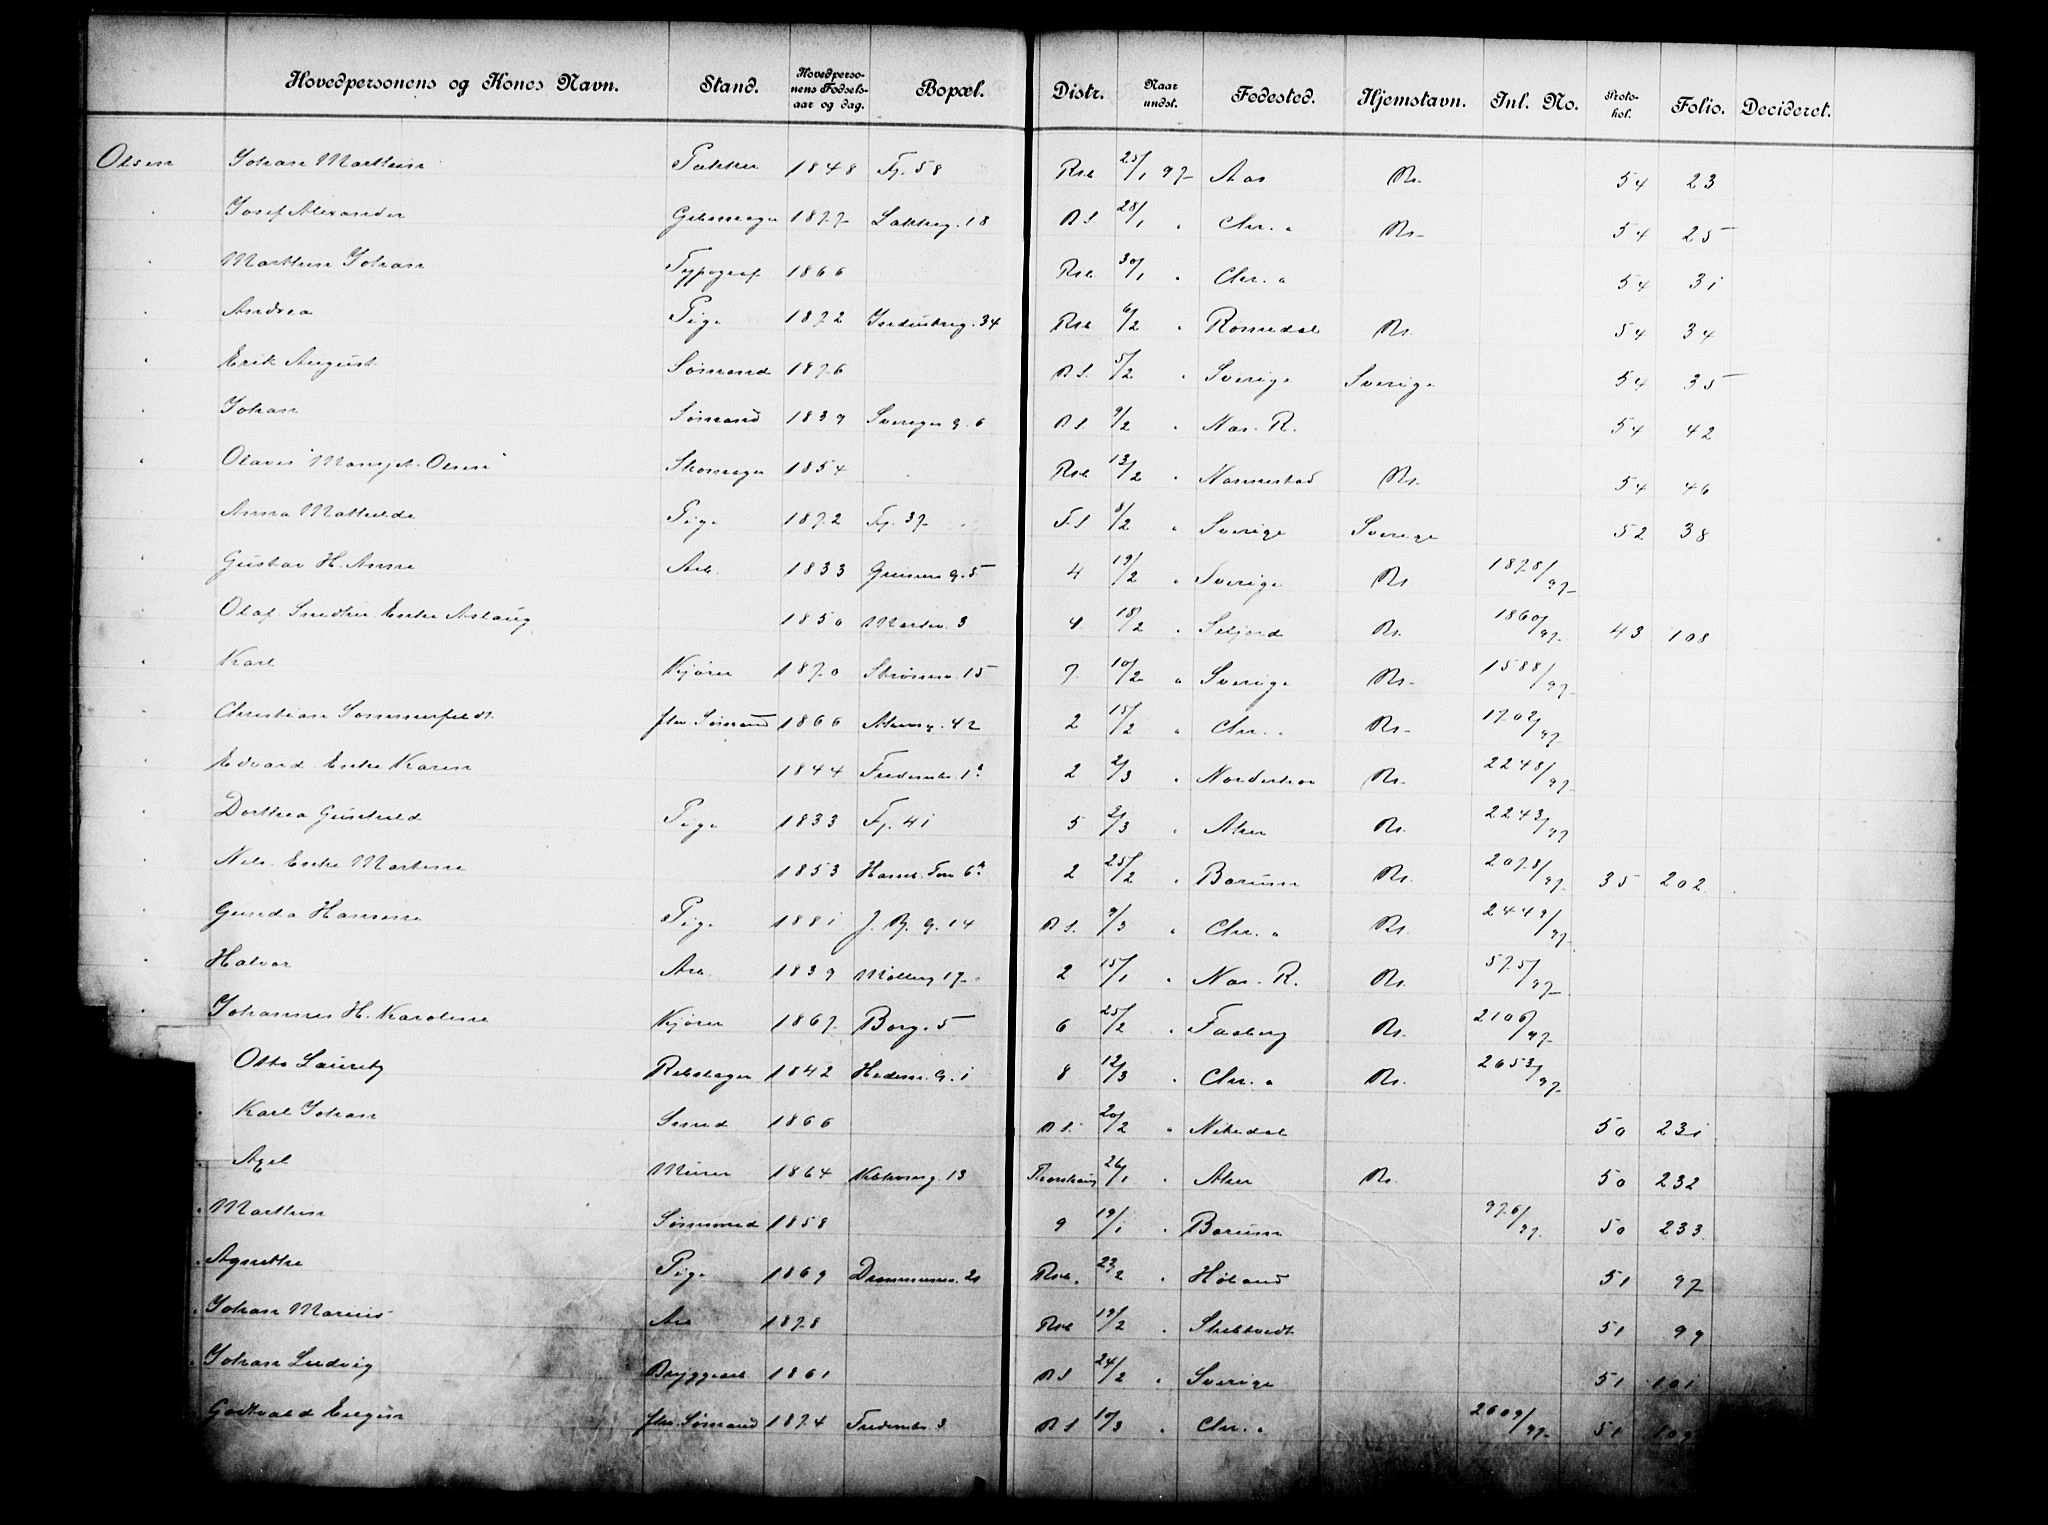 Hovedpersonens og Kones Navn. Stand. Hovedperso-nens Fødsels-aar og dag. Bopæl. Distr. Naar undst. Fødested. Hjemstavn. Inl. No. Proto-kol. Folio. Decideret.
Olsen Johan Marthin Pakker 1848 Fj. 58 Rsb 25/1 97 Aas Rs. 54 23
" Josef Alexander 1877 Lakkeg. 18 B S. 28/1 " Chr. a Rs. 54 25
" Marthin Johan Typograf 1866 Rsb 30/1 " Chr. a 54 31
" Andrea Pige 1872 Industrig. 34 Rsb 6/2 " Romedal Rs. 54 34
" Erik August Sømand 1876 B S. 5/2 " Sverige Sverige 54 35
" Johan Sømand 1839 Sveriges g. 6 B S. 9/2 " Nas. R. 54 42
" Olaves Skomager 1854 Rsb 13/2 " Nannestad Rs. 54 46
" Anna Mathilde Pige 1872 Fj. 37 F. S 8/2 " Sverige Sverige 52 38
" Gustav H. Anna Arb. 1833 Gruners g. 5 4 19/2 " Sverige Rs. 1878/97
" Olaf Snedker Enke Aslaug 1850 Markv. 3 4 18/2 " Seljord Rs. 1860/97 43 108
" Karl Kjører 1870 Strømsv. 15 7 10/2 " Sverige Rs. 1588/97
" Christian Sommerfeldt fhv Sømand 1866 Akersg. 42 2 15/2 " Chr. a Rs. 1702/97
" Edvard Enke Karen 1844 Fredensb. 1 a 2 2/3 " Norderhov Rs. 2248/97
" Dorthea Gunhild Pige 1833 Fj. 41 5 2/3 " Aker Rs. 2243/97
" Nils Enke Martine 1853 2 25/2 " Barum Rs. 2078/97 35 202
" Gunda Hansine Pige 1881 J. Bj. g. 14 B S. 9/3 " Chr. a Rs. 2449/97
" Halvor Arb. 1839 Møllerg 17 2 15/1 " Nas. R. Rs. 575/97
" Johannes H. Karoline Kjører 1867 Borg. 5 6 25/2 " Faaberg Rs. 2106/97
Otto Lauritz Rebslager 1842 Hedem. g. 1 8 12/3 " Chr. a Rs. 2653/97
" Karl Johan Smed 1866 B S. 20/2 " Nitedal 50 231
" Axel Murer 1864 13 26/1 " Aker Rs. 50 232
" Marthin Sømand 1858 9 19/1 " Barum 976/97 50 233
" Agnethe Pige 1869 Drammensv. 21 Rsb. 23/2 " Høland 51 97
" Johan Marius Arb 1878 Rsb 19/2 " Skedtvedt 51 99
" Johan Ludvig Bryggearb 1861 B S 24/2 " Sverige 51 101
Godtvald Eugen fhv. Sømand 1874 Fredensb. 3 B S 10/3 " Chr. a 2609/97 51 109